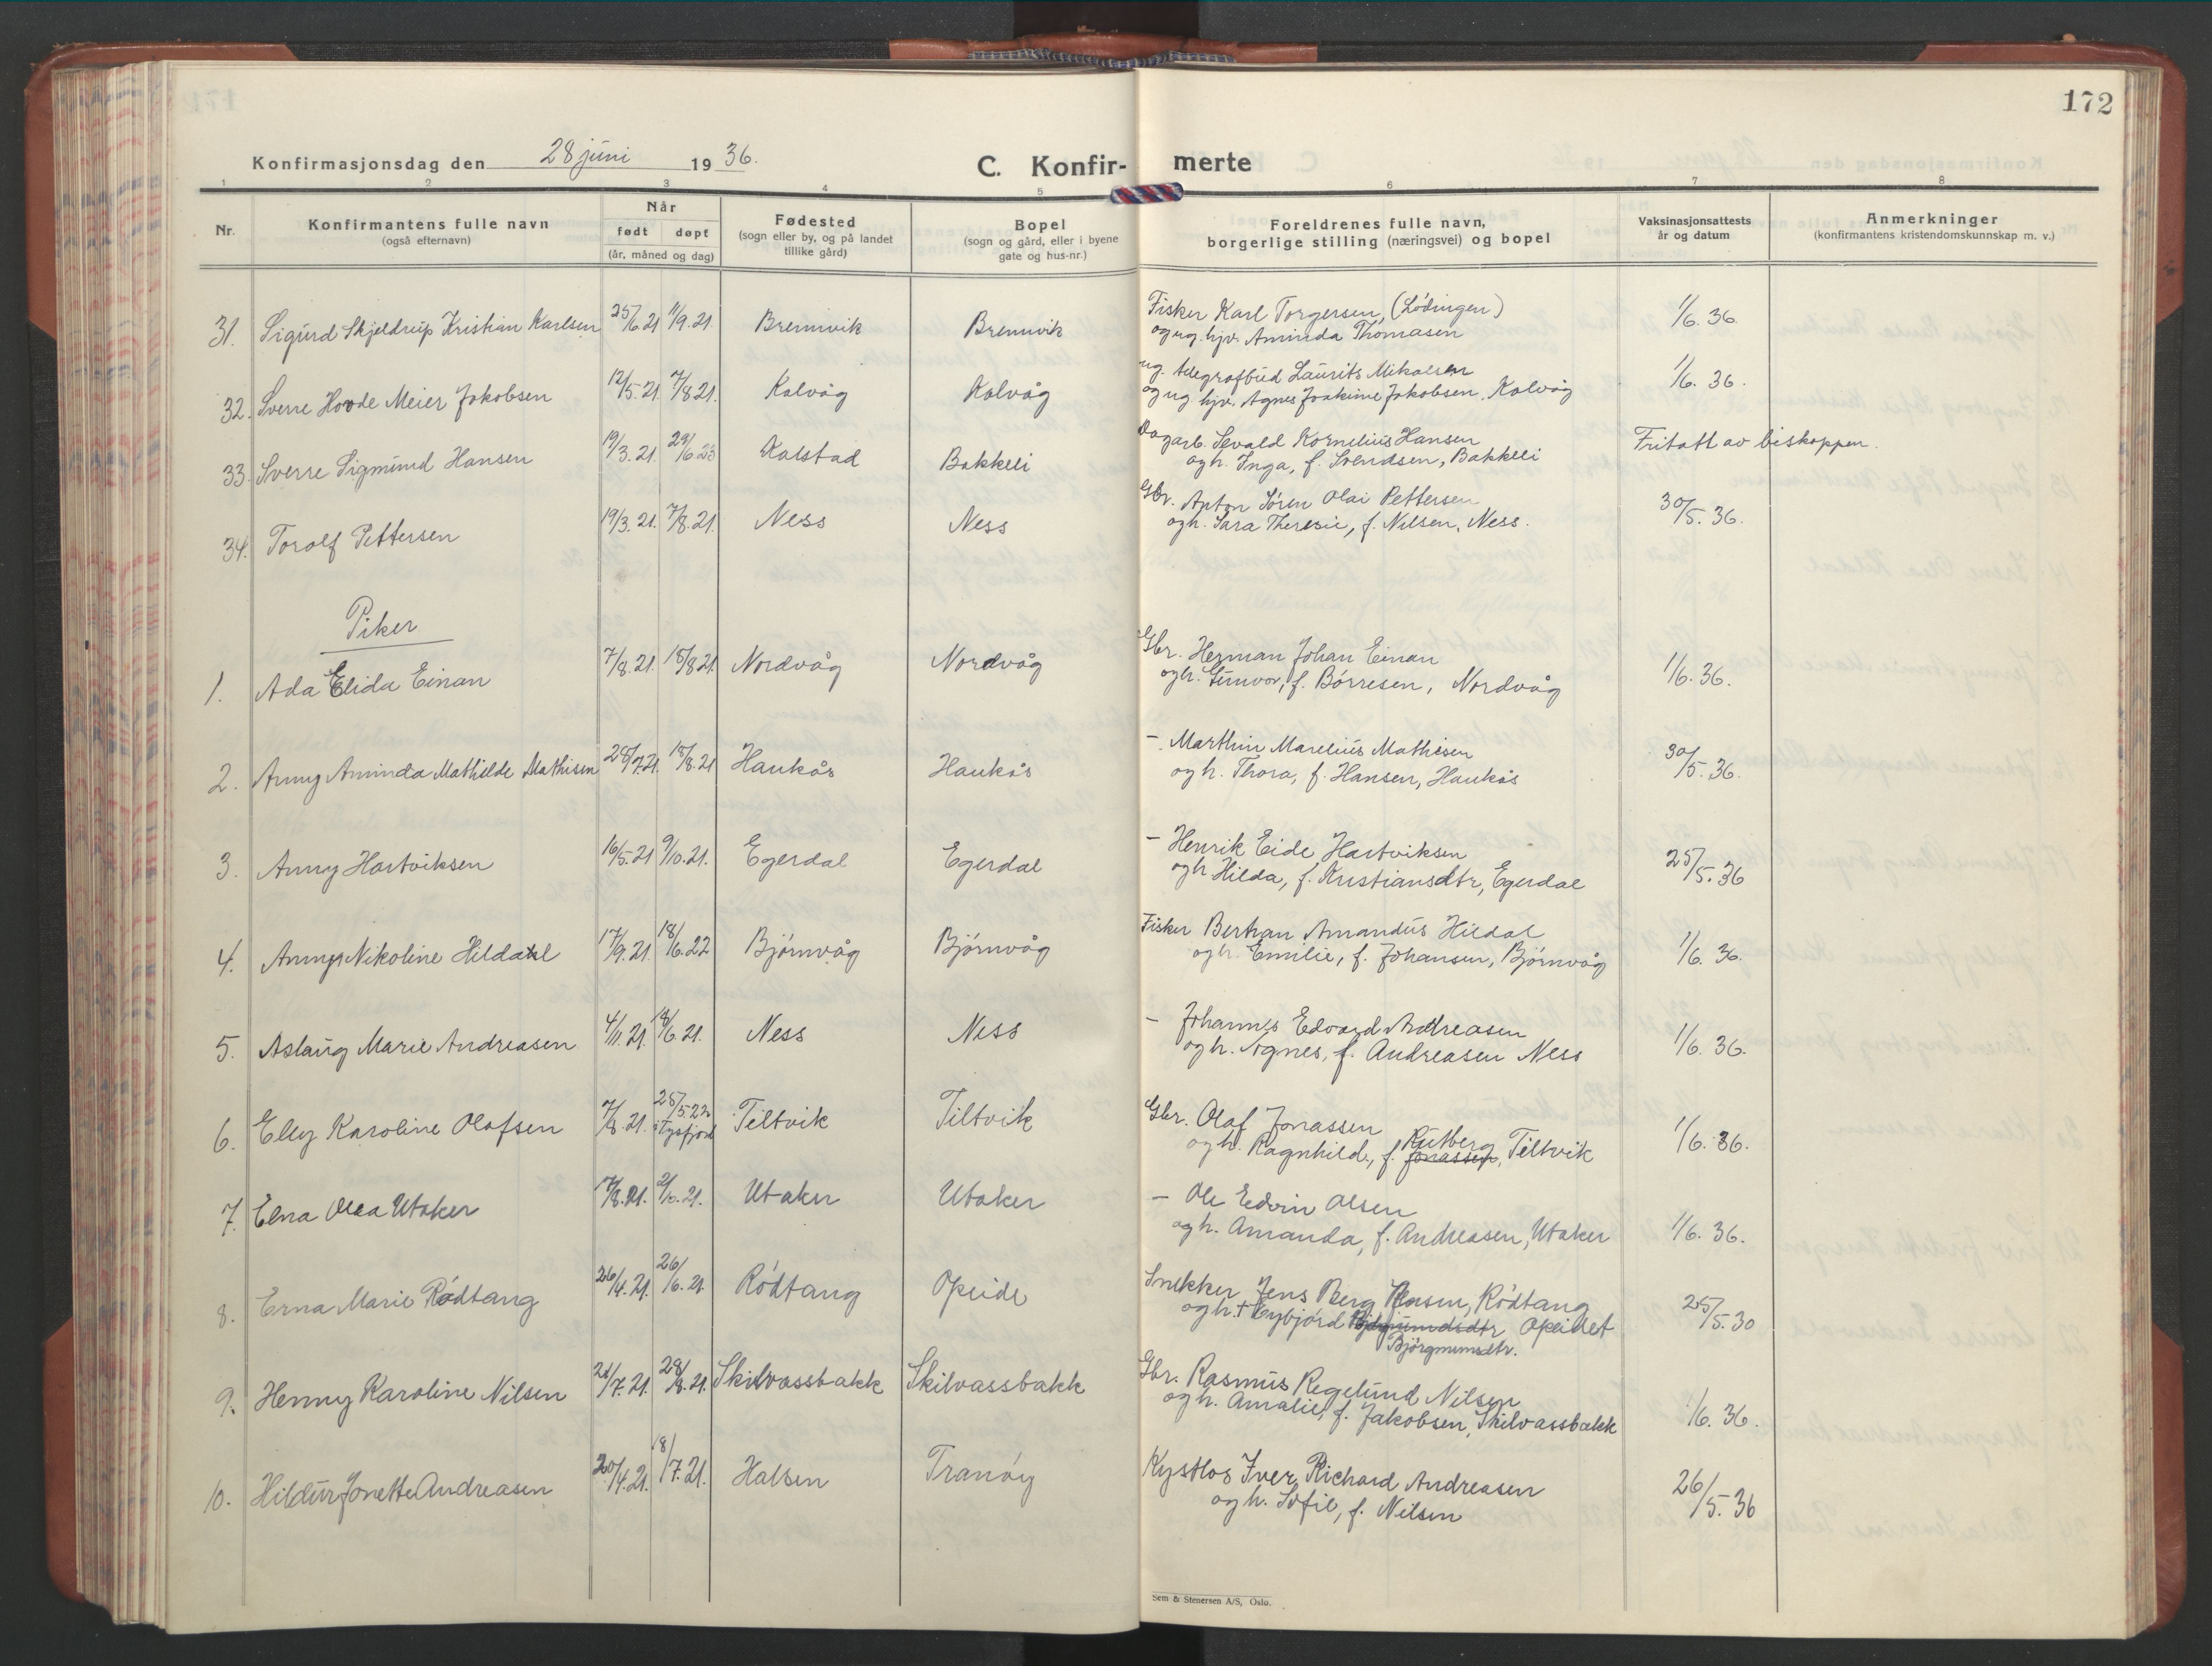 172
Konfirmasjonsdag den 28 juni 1936.
C. Konfirmerte
1 2 3 4 5 6 7 8
Nr.
Konfirmantens fulle navn
(også efternavn)
Når
født døpt
(år, måned og dag)
Fødested
(sogn eller by, og på landet
tillike gård)
Bopel
(sogn og gård, eller i byene
gate og hus-nr.)
Foreldrenes fulle navn,
borgerlige stilling (næringsvei) og bopel
Vaksinasjonsattests
år og datum
Anmerkninger
(konfirmantens kristendomskunnskap m. v.)
31. Sigurd Skjeldrup Kristian Karlsen 25/6.21 11/9.21. Bremvik Bremvik Fisker Karl Torgersen, (Lödingen) 1/6.36.
og ug. hjv. Aminda Thomasen
32. Sverre Hovde Meier Jakobsen 12/5.21. 7/8 21. Kalvåg Kalvåg ug. telegrafbud Laurits Mikalsen 1/6.36.
og ug. hjv. Agnes Joakime Jakobsen, Kalvåg
33. Sverre Sigmund Hansen 19/3.21. 29/6.23 Kalstad Bakkeli Dagarb. Sevald Kornelius Hansen Fritatt av biskoppen.
og h. Inga, f. Svendsen, Bakkeli
34. Torolf Pettersen 19/3.21. 7/8.21. Ness Ness Gbr. Anton Sören Olai Pettersen 30/5.36.
og h. Sara Theresie, f. Nilsen, Ness.
Piker
1. Ada Elida Einan 7/8.21. 15/8 21 Nordvåg Nordvåg Gbr. Herman Johan Einan 1/6.36.
og h. Gunvor, f. Börresen, Nordvåg
2. Anny Aminda Mathilde Mathisen 28/7.21. 15/8.21 Haukås Haukås – Marthin Marelius Mathisen 30/5.36.
og h. Thora, f. Hansen, Haukås
3. Anny Hartviksen 16/5.21 9/10.21. Egerdal Egerdal – Henrik Eide Hartviksen 25/5.36
og h Hilda, f. Kristiansdtr, Egerdal
4. Anny Nikoline Hildal 17/9.21. 18/6.22 Björnvåg Björnvåg Fisker Bertran Amandus Hildal 1/6.36.
og h. Emilie, f. Johansen, Björnvåg
5. Aslaug Marie Andreasen 4/11.21. 18/6.21. Ness Ness – Johannes Edvard Andreasen 1/6.36.
og h. Agnes, f. Andreasen Ness
6. Elly Karoline Olafsen 7/8.21. 25/5.22 i Tysfjord Tiltvik Tiltvik Gbr. Olaf Jonassen 1/6.36.
og h. Ragnhild, f. Jonassen Rutberg, Tiltvik
7. Elna Olea Utaker 17/8.21. 2/10.21. Utaker Utaker – Ole Edvin Olsen 1/6.36.
og h. Amanda, f. Andreasen, Utaker
8. Erna Marie Rødtang 26/4.21. 26/6.21 Rödtang Opeide Snekker Jens Berg Jensen, Rödtang 25/5.30
og h. † Eybjörd Opeidet
Björgmunsdtr.
9. Henny Karoline Nilsen 21/7.21. 28/8.21. Skilvassbakk Skilvassbakk Gbr. Rasmus Regelund Nilsen 1/6.36.
og h. Amalie, f. Jakobsen, Skilvassbakk
10. Hildur Jonette Andreasen 20/4.21. 18/7.21. Halsen Tranöy Kystlos Iver Richard Andreasen 26/5.36
og h. Sofie, f. Nilsen
Sem & Stenersen A/S, Oslo.